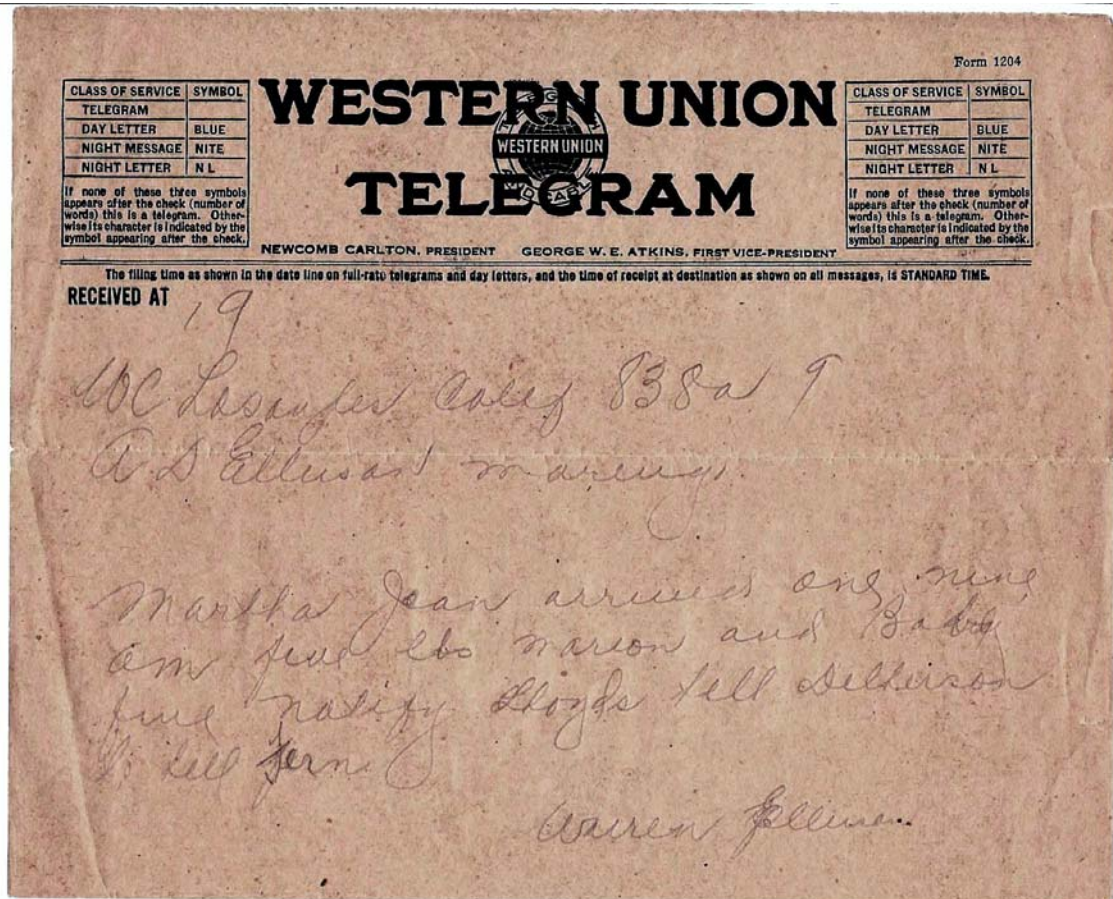 Form 1204
CLASS OF SERVICE SYMBOL
TELEGRAM
DAY LETTER BLUE
NIGHT MESSAGE NITE
NIGHT LETTER N L
If none of these three symbols
appears after the check (number of
words) this is a telegram. Other-
wise its character is indicated by the
symbol appearing after the check.
WESTERN UNION
WESTERN UNION
TELEGRAM
NEWCOMB CARLTON, PRESIDENT GEORGE W. E. ATKINS, FIRST VICE-PRESIDENT
CLASS OF SERVICE SYMBOL
TELEGRAM
DAY LETTER BLUE
NIGHT MESSAGE NITE
NIGHT LETTER N L
If none of these three symbols
appears after the check (number of
words) this is a telegram. Other-
wise its character is indicated by the
symbol appearing after the check.
The filing time as shown in the date line on full-rate telegrams and day letters, and the time of receipt at destination as shown on all messages, is STANDARD TIME.
RECEIVED AT
19
Losangles Calif 838a 9
A D Ellison Marengo
Martha Joan arrived one nine
am five lbs Marion and Baby
fine notify Lloyds tell
tell Fern
Warren Ellison